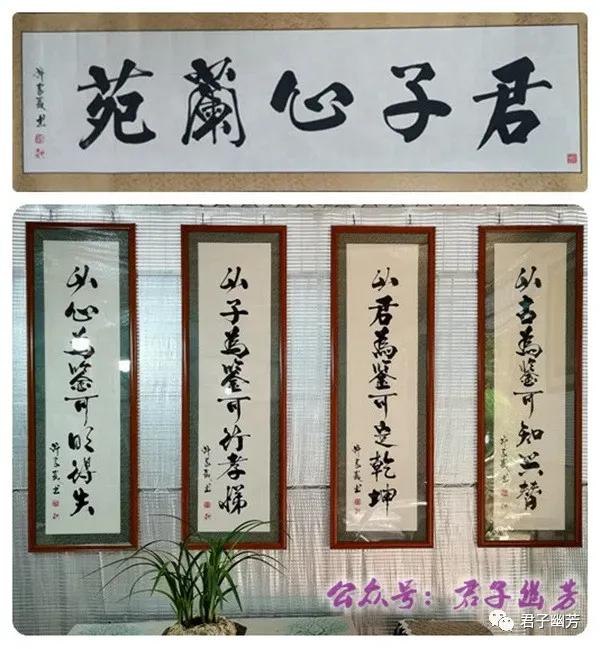 君子心蘭苑
以古為鑒可知兴替
以君為鑒可定乾坤
以子為鑒可行孝悌
以心為鑒可明得失
公众号：君子幽芳
君子幽芳